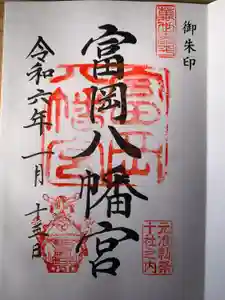 御朱印
富岡八幡宮
令和六年 一月 十三日
元准勅祭
十社之内